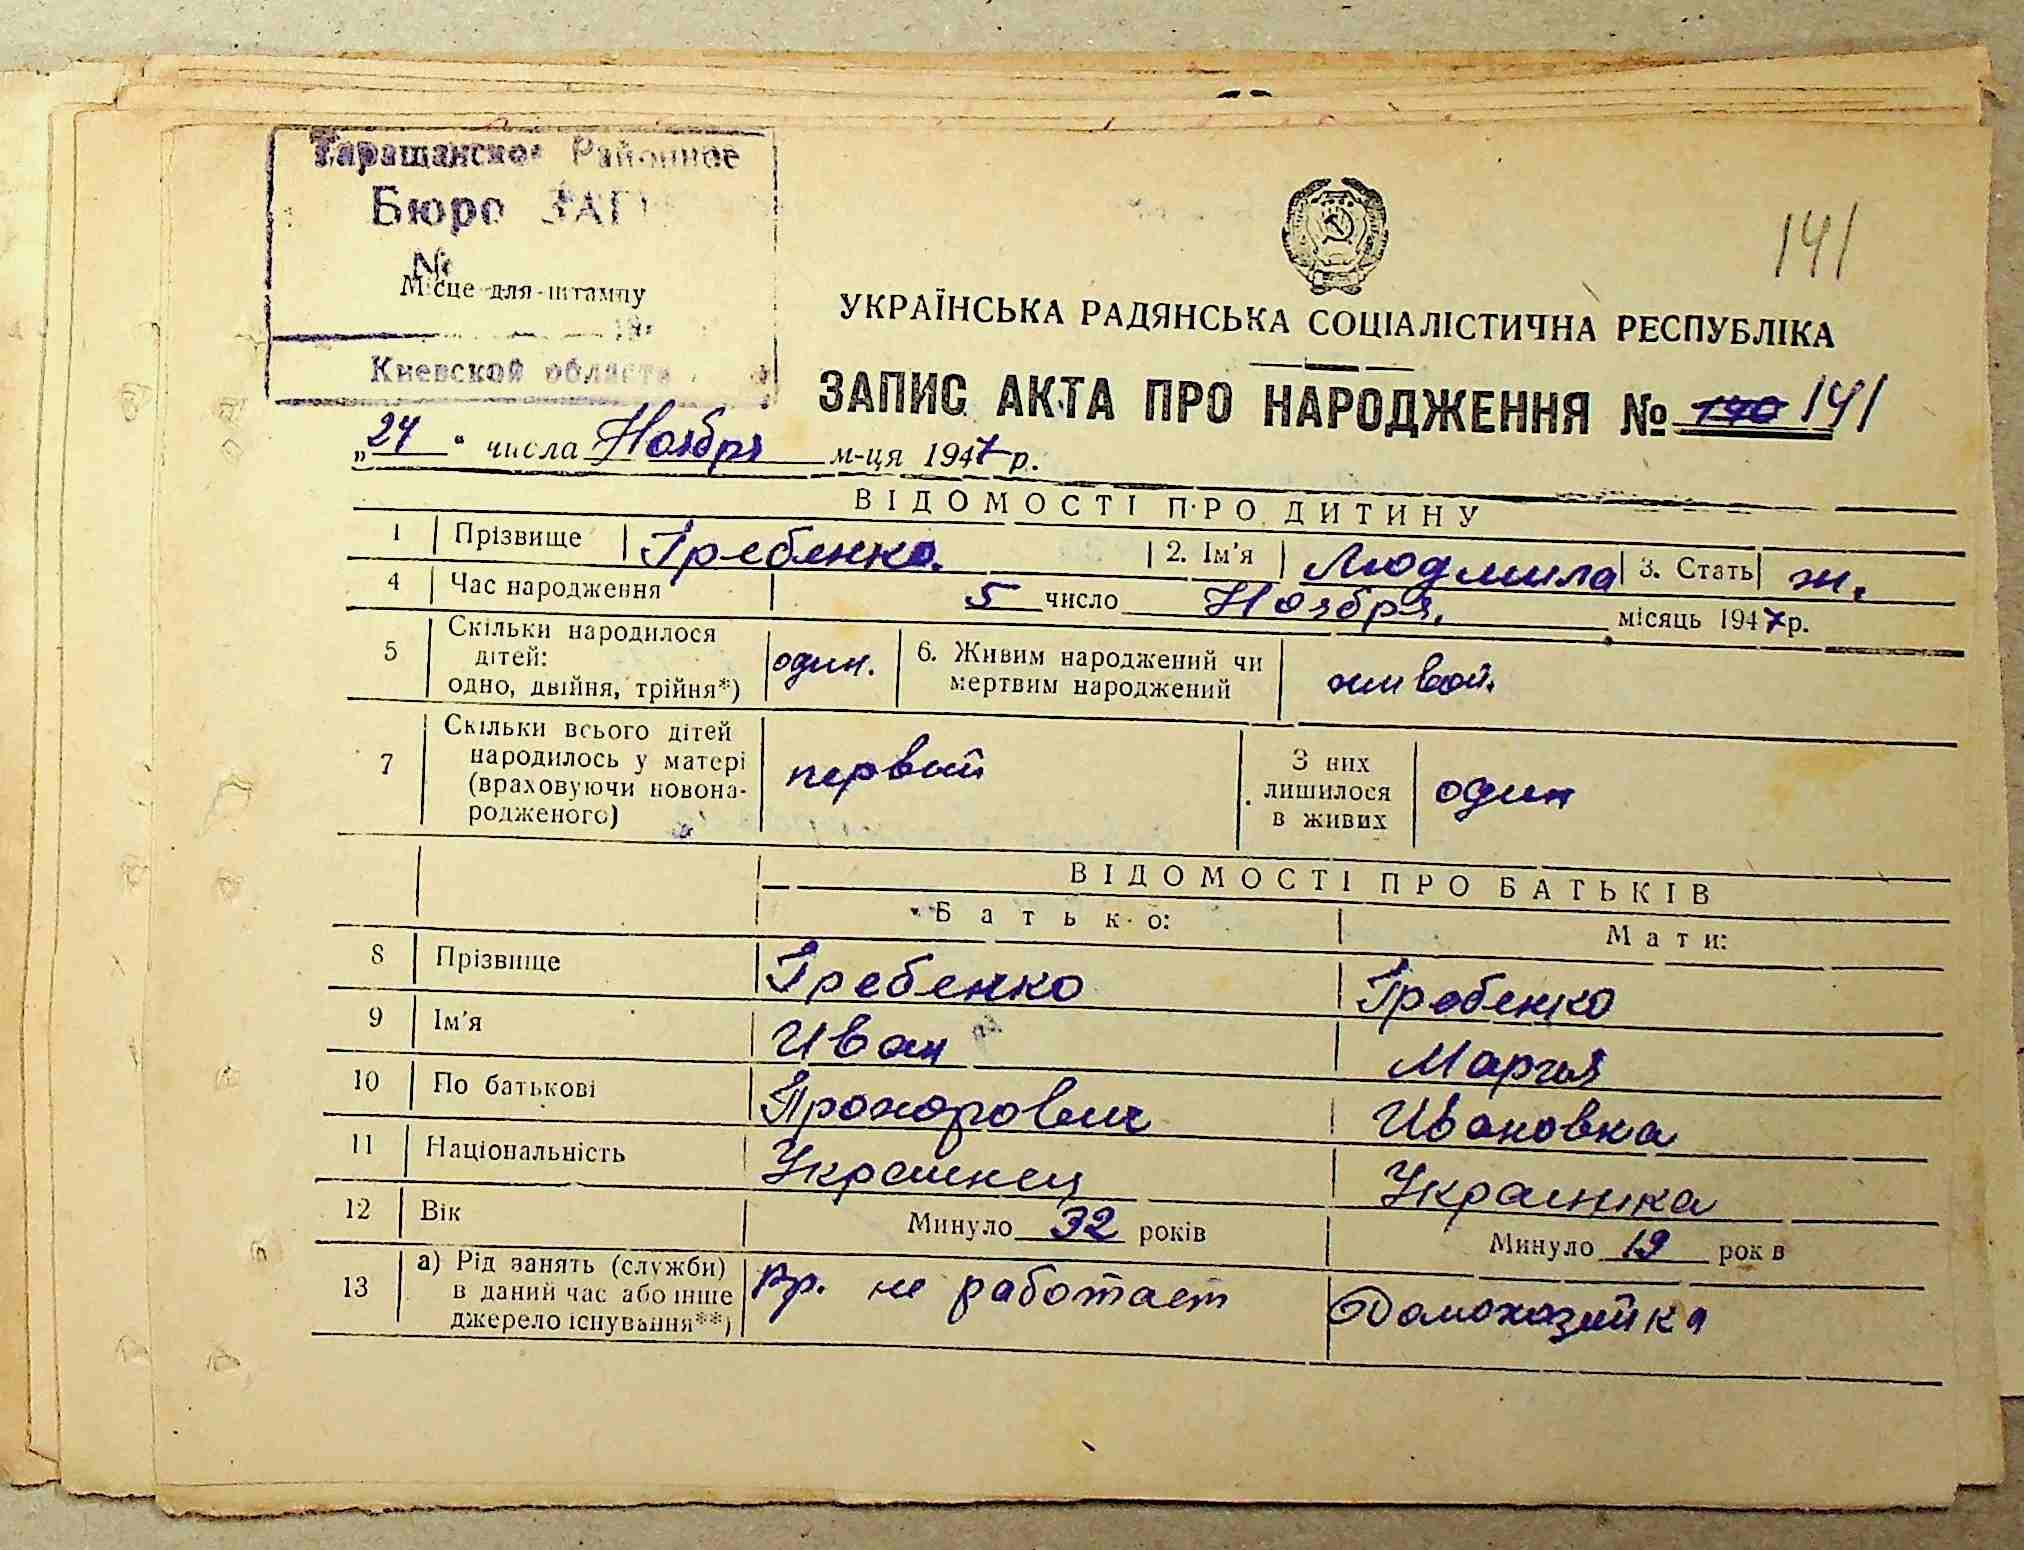 Таращанское Районное
Бюро ЗАГС
№
Місце для штампу
19
Киевской области
141
УКРАЇНСЬКА РАДЯНСЬКА СОЦІАЛІСТИЧНА РЕСПУБЛІКА
ЗАПИС АКТА ПРО НАРОДЖЕННЯ № 140 141
„24“ числа Ноября м-ця 1947 р.
ВІДОМОСТІ ПРО ДИТИНУ
1 Прізвище Гребенко. 2. Ім'я Людмила 3. Стать ж.
4 Час народження 5 число Ноября. місяць 1947 р.
5 Скільки народилося
дітей:
одно, двійня, трійня*) один. 6. Живим народжений чи
мертвим народжений живой.
7 Скільки всього дітей
народилось у матері
(враховуючи новона-
родженого) первый З них
лишилося
в живих один
ВІДОМОСТІ ПРО БАТЬКІВ
Батько: Мати:
8 Прізвище Гребенко Гребенко
9 Ім'я Иван Мария
10 По батькові Прохорович Ивановна
11 Національність Украинец Украинка
12 Вік Минуло 32 років Минуло 19 рок в
13 а) Рід занять (служби)
в даний час або інше
джерело існування**) Вр. не работает Домохозяйка